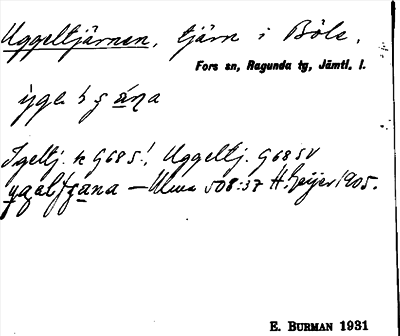 Uggeltjärnen, tjärn i Böle.
Fors sn, Ragunda tg, Jämtl. l.
Igeltj. k G68 S! Uggeltj. G68 SV
— Ulma 508:37 H. Geijer 1905.
E. BURMAN 1931